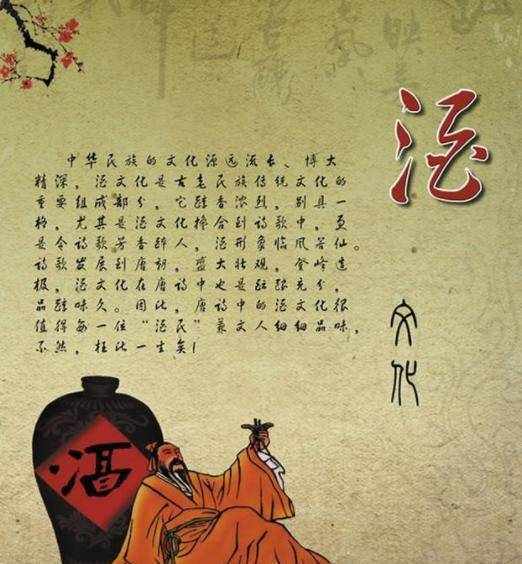 酒
文化
中华民族的文化源远流长、博大
精深，酒文化是古老民族传统文化的
重要组成部分，它醇香浓烈，别具一
格，尤其是酒文化掺合到诗歌中，更
是令诗歌芳香醉人，酒形象临风若仙。
诗歌发展到唐朝，盛大壮观，登峰造
极，酒文化在唐诗中也是酝酿充分，
品醇味久。因此，唐诗中的酒文化很
值得每一位“酒民”兼文人细细品味，
不然，枉此一生矣！
酒